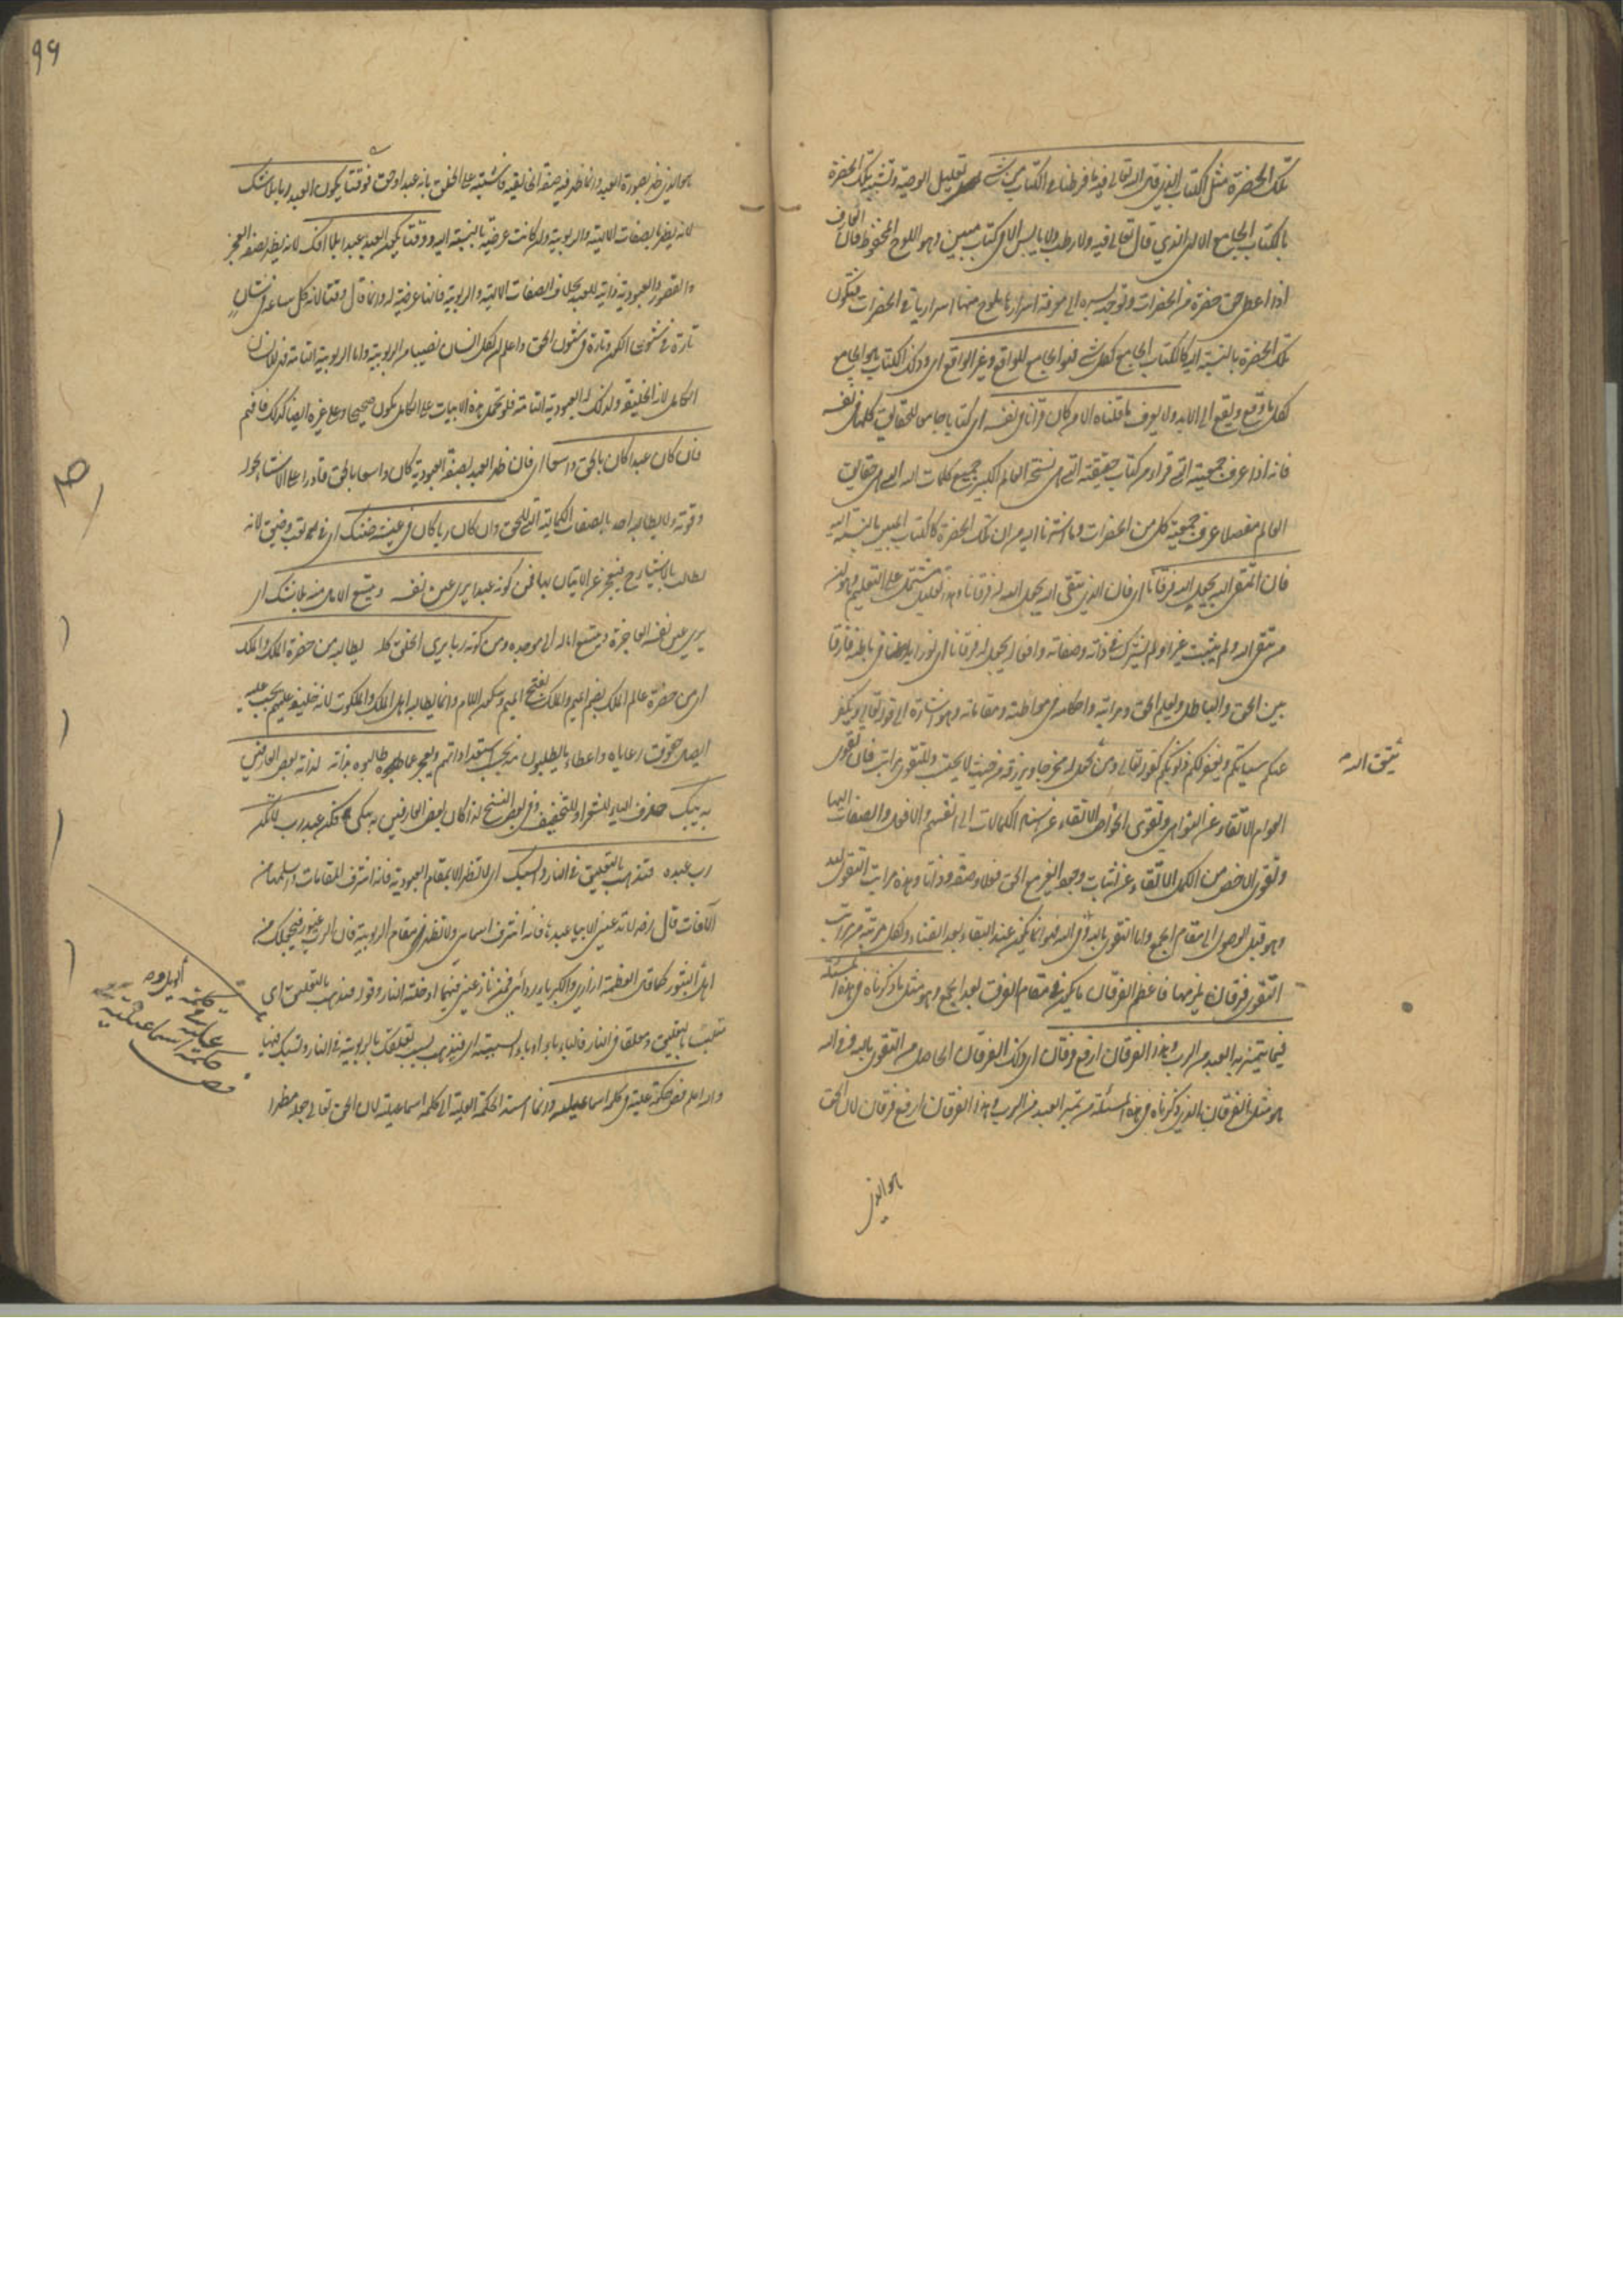 تلك الحضرة مثل الكتاب الذي قال الله تعالى فيه ما فرطنا في الكتاب من شئ تعليل الوصية وتشبيه تلك الحضرة
بالكتاب الجامع الالهي الذي قال تعالى فيه ولا رطب ولا يابس الا في كتاب مبين وهو اللوح المحفوظ فان العارف
اذا اعطى حق حضرة من الحضرات وتوجه بسره الى معرفة اسرارها يلوح منها اسرار باقي الحضرات فتكون
تلك الحضرة بالنسبة اليه كالكتاب الجامع لكل شئ فهو الجامع للواقع وغير الواقع اي وذلك الكتاب هو الجامع
لكل ما وقع ويقع الى الابد ولا يعرف ما قلناه الا من كان قرآنا في نفسه اي كتابا جامعا للحقائق كلها في نفسه
فانه اذا عرف جمعيته التي قرأ من كتاب حقيقته التي هي نسخة العالم الكبير جميع كلمات الله التي هي حقائق
العالم مفصلا عرف جمعية كل من الحضرات وما اشرنا اليه من ان تلك الحضرة كالكتاب المبين بالنسبة اليه
فان المتقي الله يجعل له فرقانا اي فان الذي يتقي الله يجعل الله له فرقانا وهذا تعليل مشتمل على التعليم وهو ان
من يتقي الله ولم يثبت غيرا ولم يشرك في ذاته وصفاته وافعاله يجعل له فرقانا اي نورا في باطنه فارقا
بين الحق والباطل ويعلم الحق ومراتبه واحكامه في مواطنه ومقاماته وهو اشارة الى قوله تعالى ويكفر
عنكم سيئاتكم ويغفر لكم ذنوبكم كقوله تعالى ومن يتق الله يجعل له مخرجا ويرزقه من حيث لا يحتسب وللتقوى مراتب فان تقوى
العوام الاتقاء عن النواهي وتقوى الخواص الاتقاء عن اسناد الكمالات الى انفسهم والافعال والصفات اليها
وتقوى الاخص من الكمل الاتقاء عن اثبات وجود الغير مع الحق فعلا وصفة وذاتا وهذه مراتب التقوى لله
وهو قبل الوصول الى مقام الجمع واما التقوى بالله وفي الله فهو انما يكون عند البقاء بعد الفناء ولكل مرتبة من مراتب
التقوى فرقان يلزمها فاعظم الفرقان ما يكون في مقام الفرق بعد الجمع وهو مثل ما ذكرناه في هذه المسئلة
فيما يتميز به العبد من الرب وهذا الفرقان ارفع فرقان اي وذلك الفرقان الحاصل من التقوى بالله وفي الله
هو مثل الفرقان الذي ذكرناه في هذه المسئلة من تميز العبد من الرب وهذا الفرقان ارفع فرقان لان الحق
هو الذي
يتق الله
٩٩
هو الذي ظهر بصورة العبد وانما ظهر فيه صفة الخالقية فاشتبه على الخلق بانه عبد او حق فوقتا يكون العبد ربا بلا شك
لانه يظهر بالصفات الالهية والربوبية وان كانت عرضية بالنسبة اليه ووقتا يكون العبد عبدا بلا افك لانه يظهر بصفة العجز
والقصور والعبودية ذاتية للعبد بخلاف الصفات الالهية والربوبية فانها عرضية له وانما قال وقتا لانه كل ساعة في شان
تارة في شئون الكون وتارة في شئون الحق واعلم ان لكل انسان نصيبا من الربوبية واما الربوبية التامة فللانسان
الكامل لانه الخليفة وكذلك العبودية التامة فلو تحمل هذه الابيات على الكامل يكون صحيحا وعلى غيره ايضا كذلك فافهم
فان كان عبدا كان بالحق واسعا اي فان ظهر العبد بصفة العبودية كان واسعا بالحق قادرا على الاشياء بحوله
وقوته ولا يطالبه احد بالصفات الكمالية التي للحق وان كان ربا كان في عيشة ضنك اي في تعب وضيق لانه
يطالب بالاشياء فيعجز عن الاتيان بها فمن كونه عبدا يرى عين نفسه ويتسع الآمال منه بلا شك اي
يرى عين نفسه العاجزة ويتسع آماله الى موجده ومن كونه ربا يرى الخلق كله يطالبه من حضرة الملك والملك
اي من حضرة عالم الملك بضم الميم والملك بفتح الميم وسكون اللام وانما يطالبه اهل الملك والملكوت لانه خليفة عليهم يجب عليه
ايصال حقوق رعاياه واعطاء ما يطلبون منه بحسب استعداداتهم ويعجز عما طالبوه بذاته لذا تر بعض العارفين
به يبك حذف الياء للشعر او للتخفيف وفي بعض النسخ لذا كان بعض العارفين به يبكي فكن عبد رب لا تكن
رب عبده فتذهب بالتعليق في النار والسبك اي لا تظهر الا بمقام العبودية فانه اشرف المقامات واسلمها من
الآفات قال لا تدعني الا بيا عبدها فانه اشرف اسمائي ولا تظهر بمقام الربوبية فان الرب غيور فيجعلك من
اهل الثبور كما قال العظمة ازاري والكبرياء ردائي فمن نازعني فيهما ادخلته النار وقوله فتذهب بالتعليق اي
متلبسا بالتعليق ومعلقا في النار فالباء باء السببية اي فتذهب بسبب تعلقك بالربوبية في النار وتسبك فيها
والله اعلم فص حكمة علية في كلمة اسماعيلية وانما اسند الحكمة العلية الى كلمة اسماعيلية لان الحق تعالى جعله مظهرا
فص حكمة علية في كلمة اسماعيلية